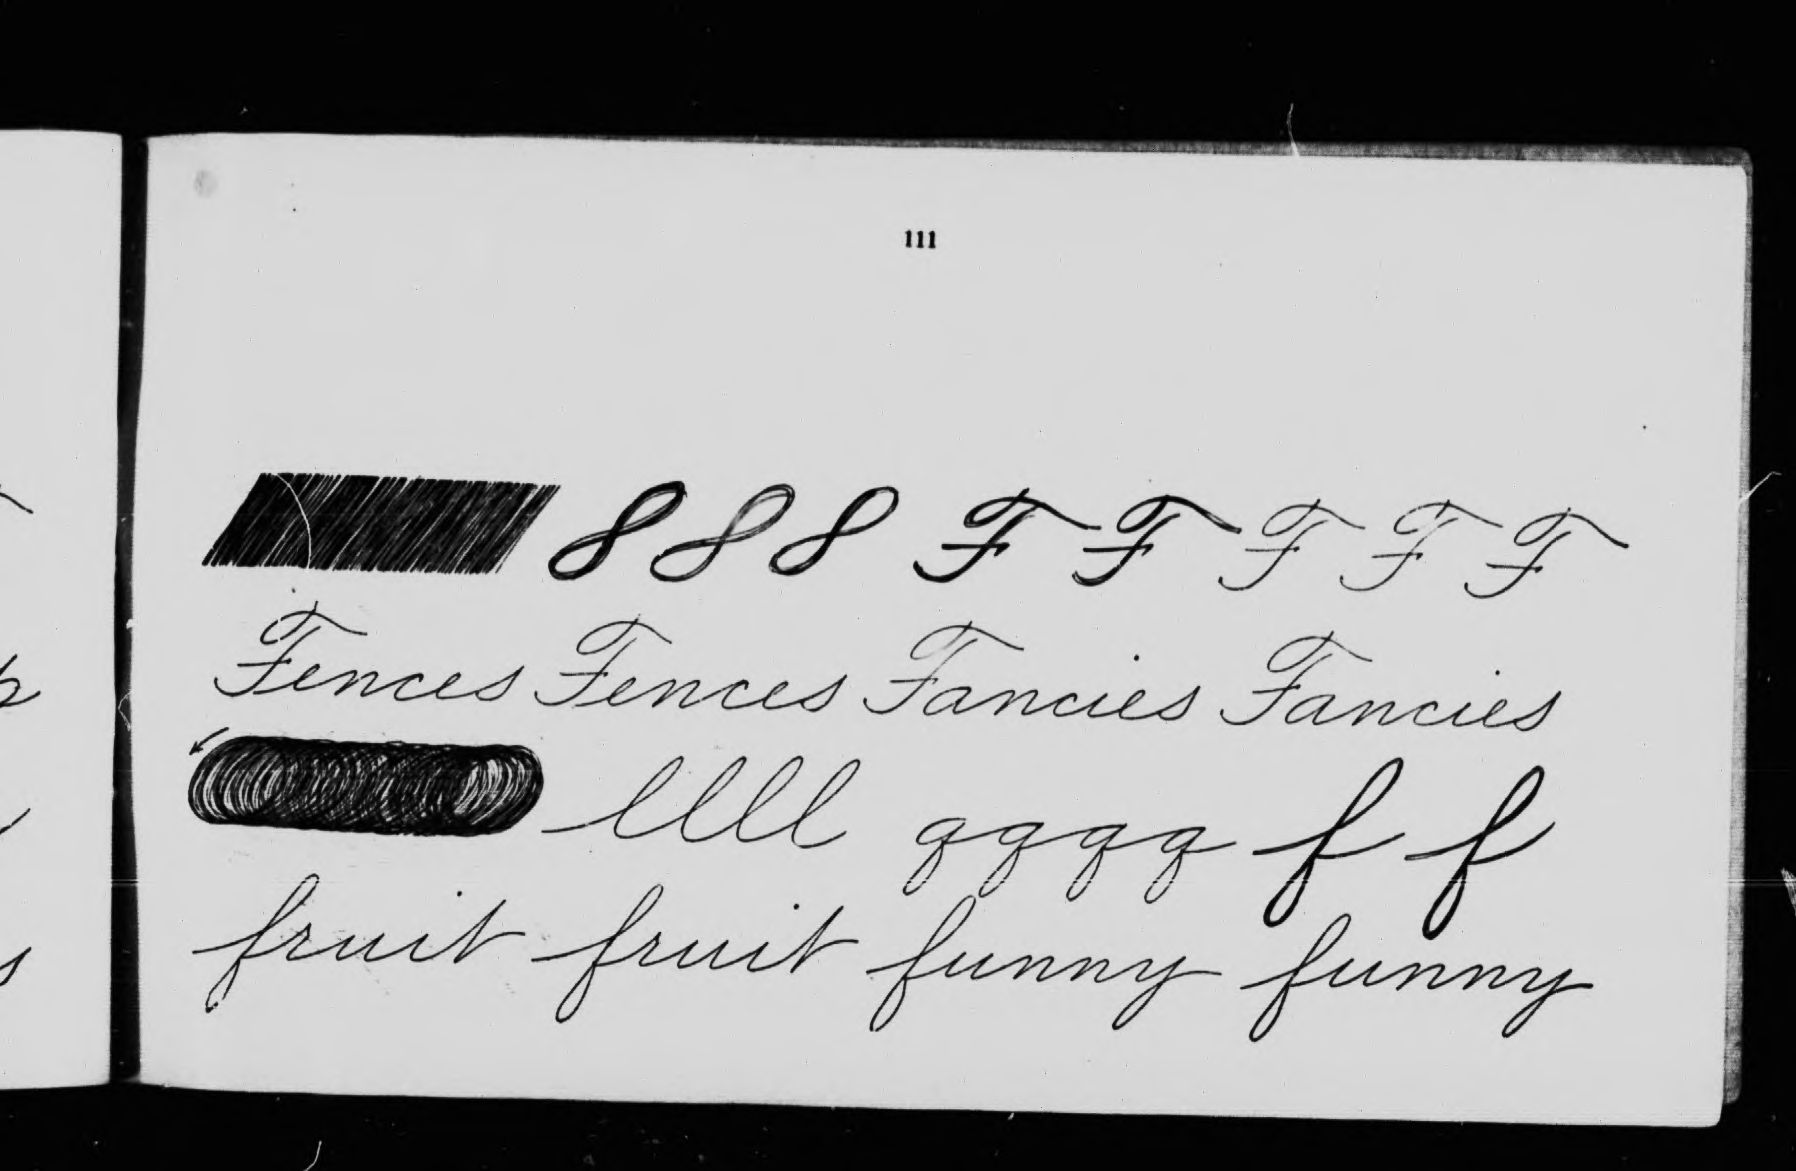 111
8 8 8 F F F F F
Fences Fences Fancies Fancies
llll qqqq f f
fruit fruit funny funny